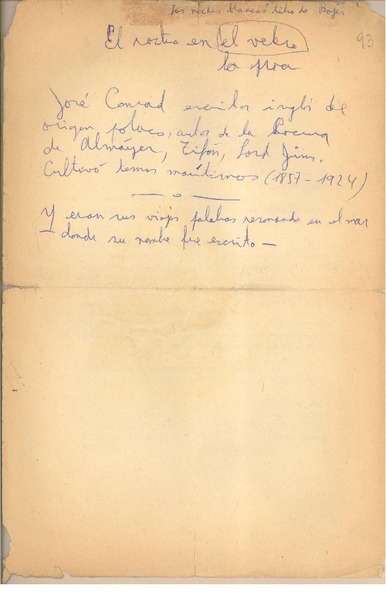 93
El rostro en el velero
la proa
José Conrad escritor inglés de
origen polaco, autor de la Locura
de Almáyer, Tifón, Lord Jim.
Cultivó temas marítimos (1857-1924)
Y eran sus viajes palabras resonando en el mar
— donde su nombre fue escrito —